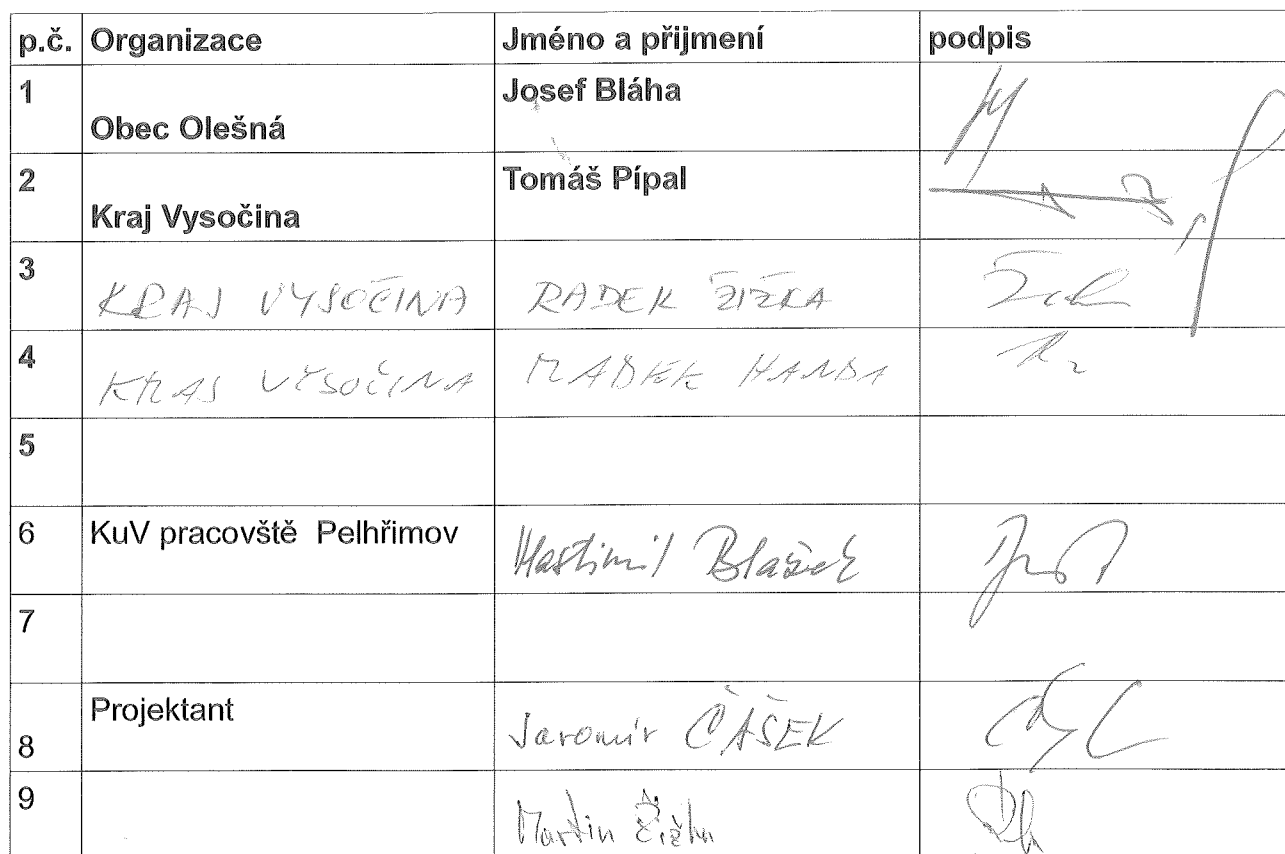 p.č. Organizace Jméno a přijmení podpis
1 Obec Olešná Josef Bláha
2 Kraj Vysočina Tomáš Pípal
3 KRAJ VYSOČINA RADEK ŽIŽKA
4 KRAJ VYSOČINA RADEK HANDA
5
6 KuV pracovště Pelhřimov Vlastimil Blažek
7
8 Projektant Jaromír ČÁŠEK
9 Martin